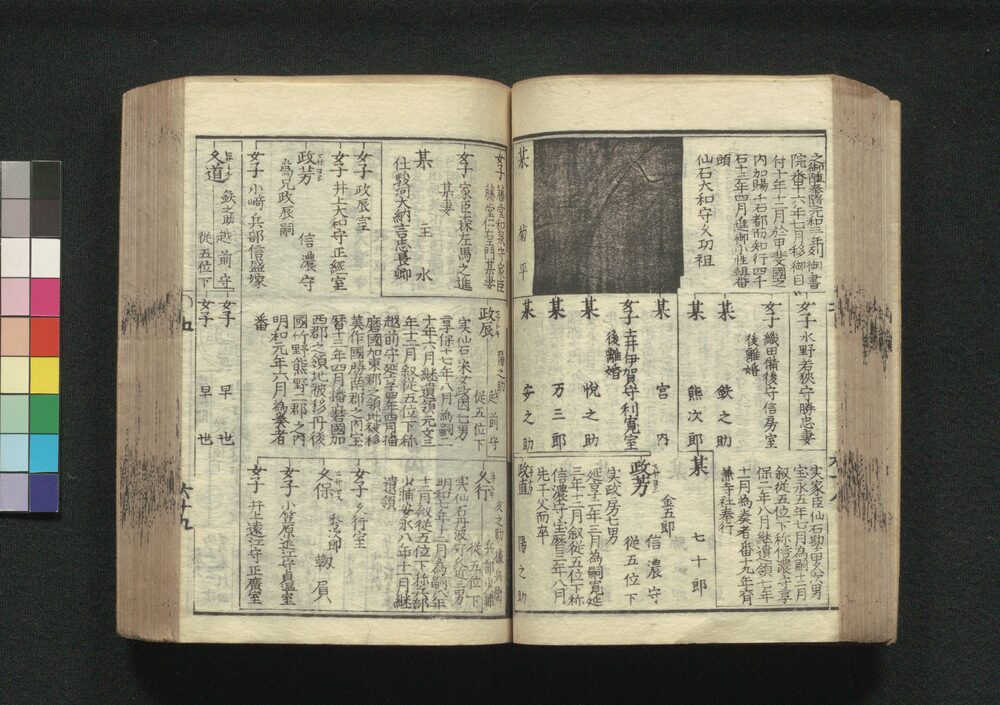 院番十六年七月移御目
付十年十二月於甲斐國之
内加賜千石都而知行四千
石十三年四月進御小性組番
頭
仙石大和守久功祖
某 菊平
女子 水野若狭守勝忠妻
女子 織田備後守信房室
後離婚
某 鉄之助
某 熊次郎
某 宮内
女子 土井伊賀守利寛室
後離婚
某 悦之助
某 万三郎
某 安之助
宝永五年七月為嗣十二月
叙従五位下称信濃守享
保二年八月継遺領七年
兼寺社奉行
某 七十郎
政芳 信濃守
金五郎 従五位下
実政房七男
延享二年三月為嗣寛延
三年十二月叙従五位下称
信濃守宝暦三年八月
先于父而卒
政直 陽之助
女子 藤堂和泉守家臣
藤堂仁右衛門某妻
女子 家臣森左馬之進
某妻
某 主水
仕駿河大納言忠長卿
女子 政辰室
女子 井上大和守正経室
政芳 信濃守
為兄政辰嗣
女子 小崎兵部信盛嫁
久道 鉄之助 越前守
従五位下
政辰 陽之助 越前守
従五位下
享保十七年八月為嗣二
十年六月継遺領元文三
年十二月叙従五位下称
越前守延享四年四月播
磨國加東郡之領地被移
美作國勝南郡之内宝
暦十三年四月播磨國加
西郡之領地被移丹後
國竹野熊野二郡之内
明和元年六月為奏者
番
女子 早世
女子 早世
久行
従五位下
実仙石丹波守久近三男
明和七年十二月為嗣八年
十二月叙従五位下称兵部
少輔安永八年十二月継
遺領
女子 久行室
久保 靱負
女子 小笠原近江守貞温室
女子 井上遠江守正廣室
六十九